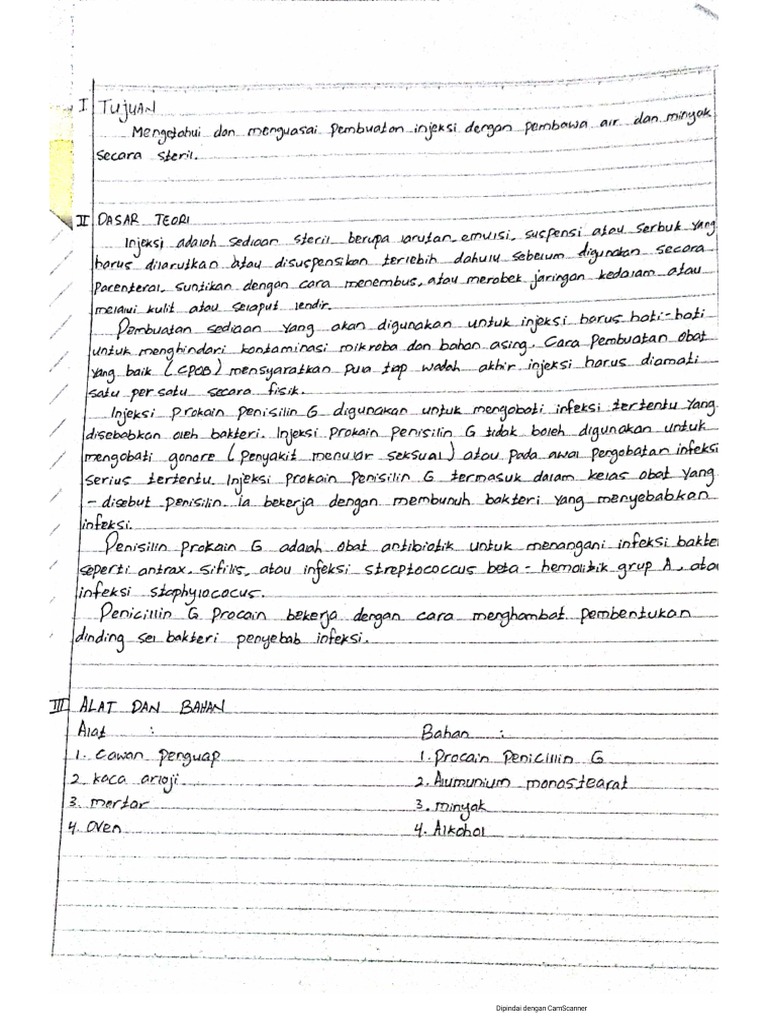 I TUJUAN
Mengetahui dan menguasai pembuatan injeksi dengan pembawa air dan minyak
secara steril.
II DASAR TEORI
Injeksi adalah sediaan steril berupa larutan, emulsi, suspensi atau serbuk yang
harus dilarutkan atau disuspensikan terlebih dahulu sebelum digunakan secara
parenteral, suntikan dengan cara menembus, atau merobek jaringan kedalam atau
melalui kulit atau selaput lendir.
Pembuatan sediaan yang akan digunakan untuk injeksi harus hati-hati
untuk menghindari kontaminasi mikroba dan bahan asing. Cara Pembuatan Obat
yang baik (CPOB) mensyaratkan pula tiap wadah akhir injeksi harus diamati
satu per satu secara fisik.
Injeksi Prokain penisilin G digunakan untuk mengobati infeksi tertentu yang
disebabkan oleh bakteri. Injeksi Prokain Penisilin G tidak boleh digunakan untuk
mengobati gonore (penyakit menular seksual) atau pada awal pergobatan infeksi
serius tertentu. Injeksi prokain Penisilin G termasuk dalam kelas obat yang
- disebut penisilin. Ia bekerja dengan membunuh bakteri yang menyebabkan
infeksi.
Penisilin Prokain G adalah obat antibiotik untuk menangani infeksi bakte
seperti antrax, sifilis, atau infeksi streptococcus beta-hemolitik grup A, ata
infeksi staphylococus.
Penicillin G Procain bekerja dengan cara menghambat pembentukan
dinding sel bakteri penyebab infeksi.
III ALAT DAN BAHAN
Alat : Bahan :
1. Cawan penguap 1. Procain Penicillin G
2. kaca arloji 2. Alumunium monostearat
3. mortar 3. minyak
4. Oven 4. Alkohol
Dipindai dengan CamScanner